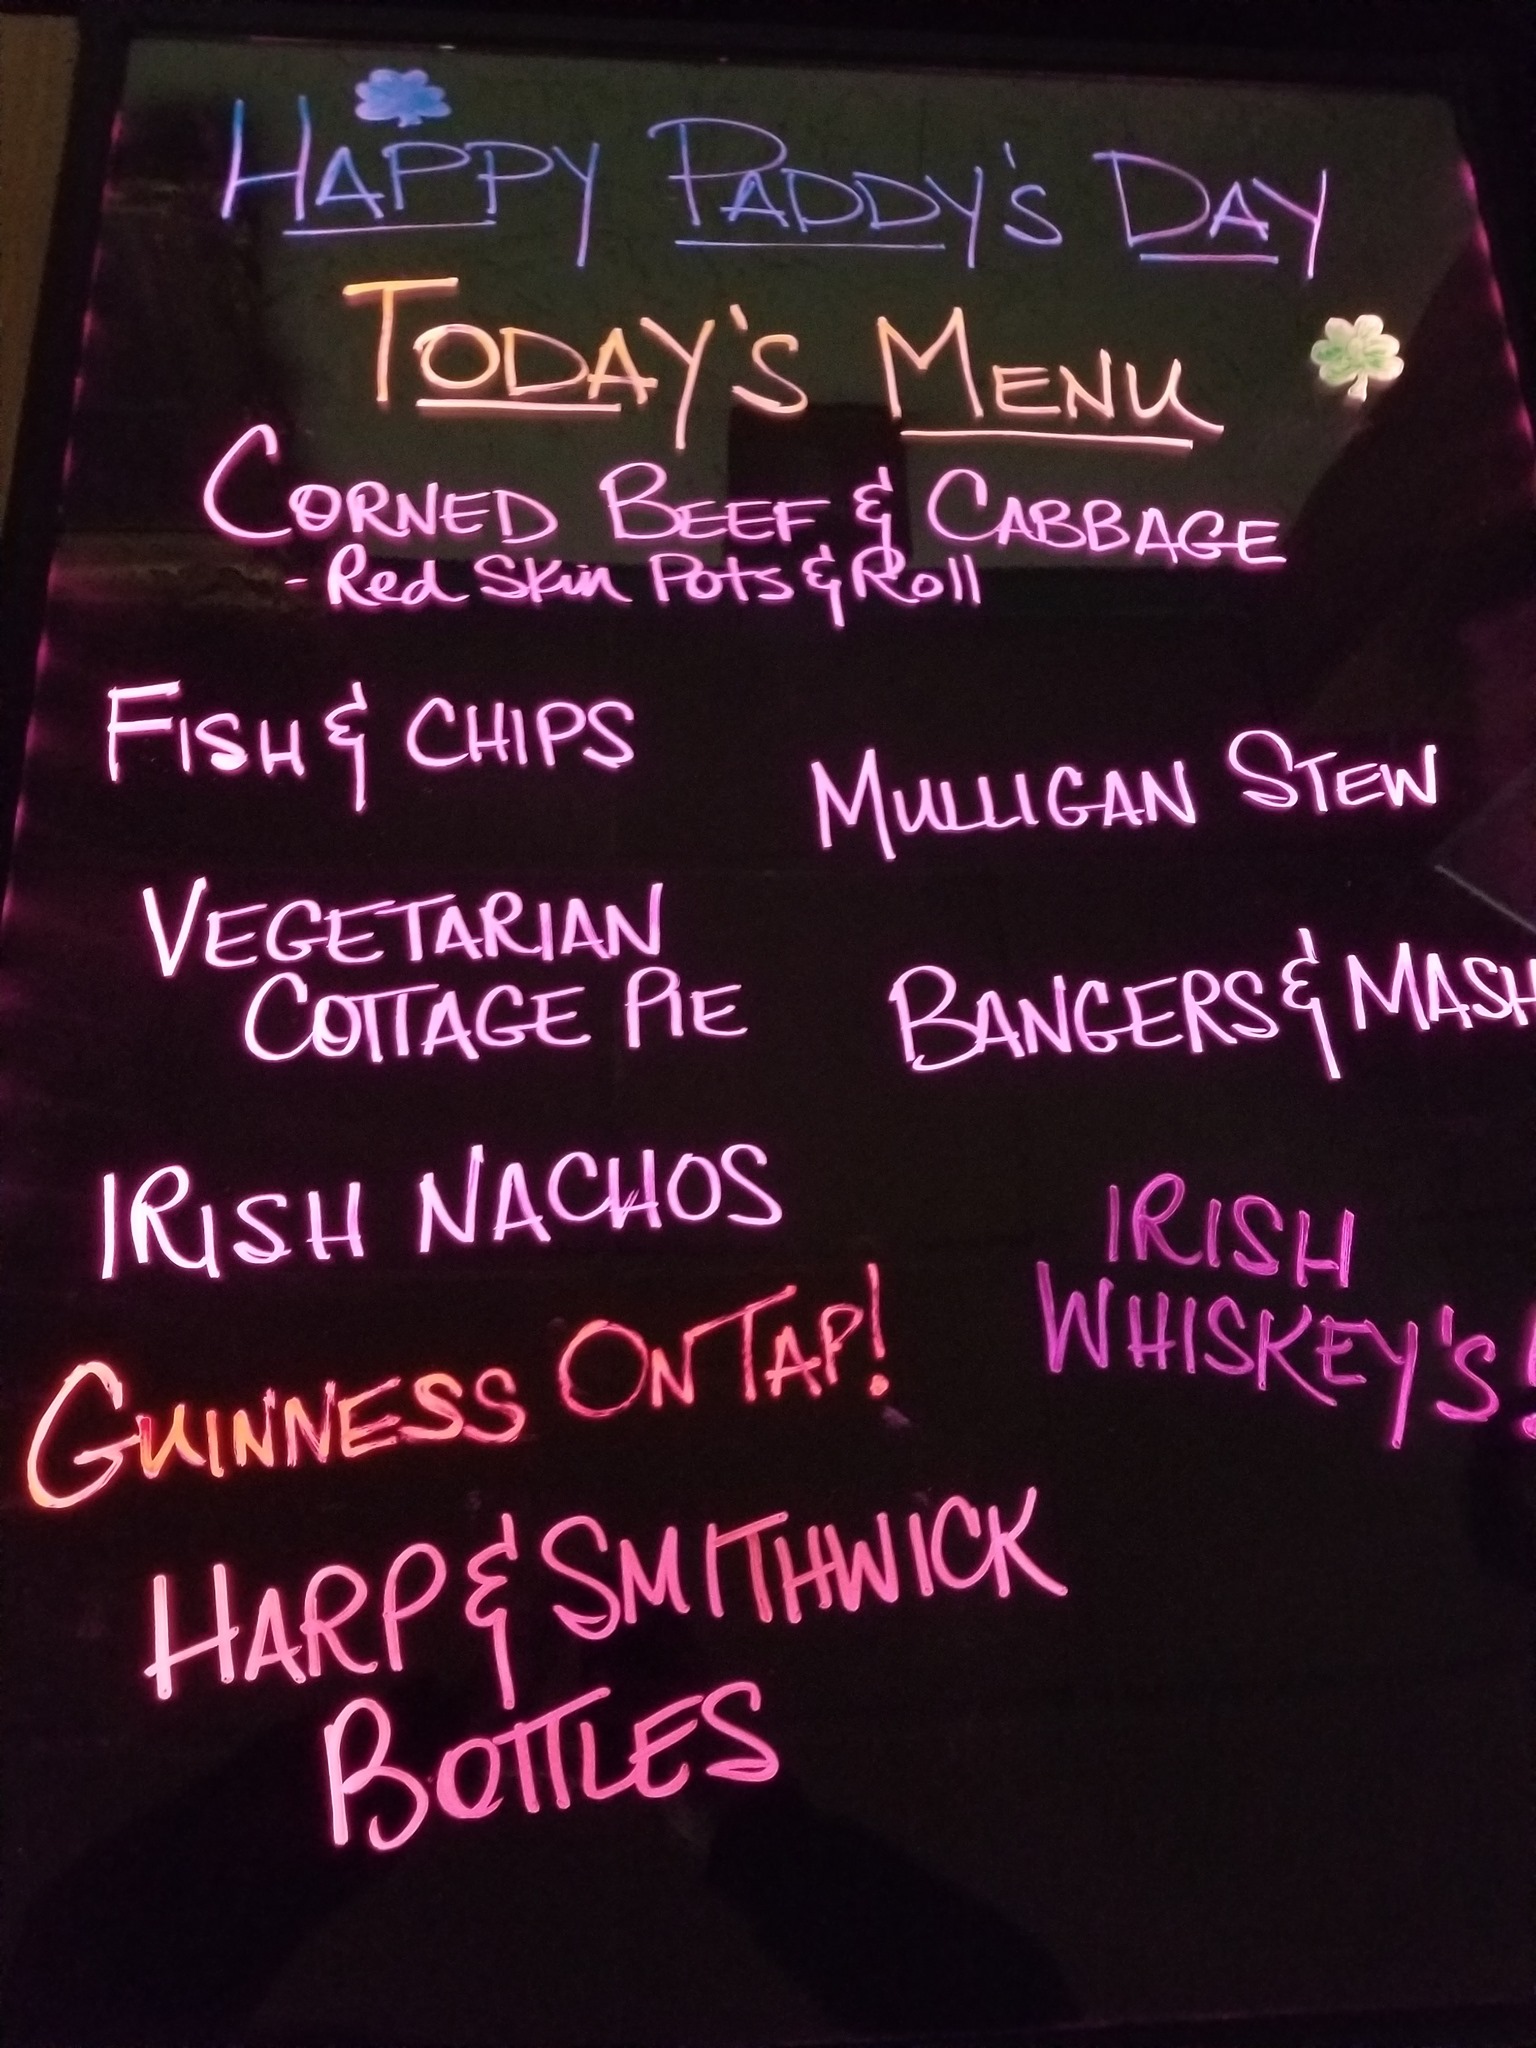 HAPPY PADDY'S DAY
TODAY'S MENU
CORNED BEEF & CABBAGE
- Red Skin Pots & Roll
FISH & CHIPS
MULLIGAN STEW
VEGETARIAN
COTTAGE PIE
BANGERS & MASH
IRISH NACHOS
IRISH
WHISKEY'S!
GUINNESS ON TAP!
HARP & SMITHWICK
BOTTLES